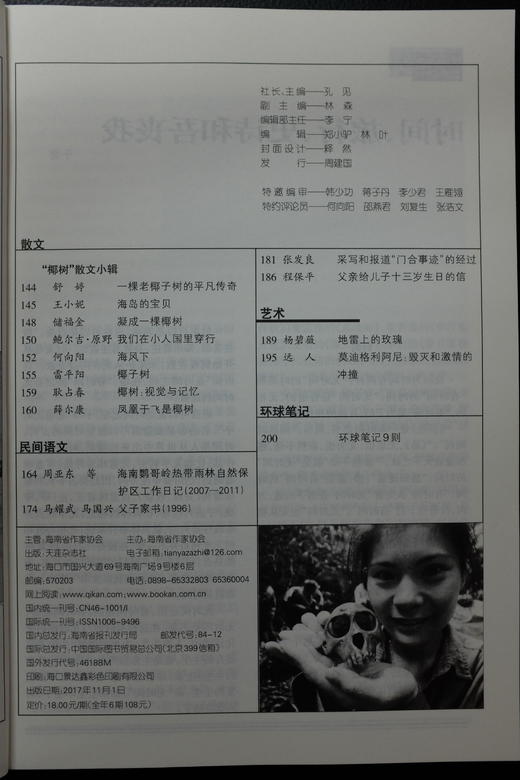 社长、主编——孔 见
副 主 编——林 森
编辑部主任——李 宁
编 辑——郑小驴 林 叶
封面设计——释 然
发 行——周建国
特邀编审——韩少功 蒋子丹 李少君 王雁翎
特约评论员——何向阳 邵燕君 刘复生 张浩文
散文
“椰树”散文小辑
144 舒 婷 一棵老椰子树的平凡传奇
145 王小妮 海岛的宝贝
148 储福金 凝成一棵椰树
150 鲍尔吉·原野 我们在小人国里穿行
152 何向阳 海风下
155 雷平阳 椰子树
159 耿占春 椰树:视觉与记忆
160 薛尔康 凤凰于飞是椰树
民间语文
164 周亚东 等 海南鹦哥岭热带雨林自然保
护区工作日记(2007—2011)
174 马耀武 马国兴 父子家书(1996)
181 张发良 采写和报道“门合事迹”的经过
186 程保平 父亲给儿子十三岁生日的信
艺术
189 杨碧薇 地雷上的玫瑰
195 远 人 莫迪格利阿尼:毁灭和激情的
冲撞
环球笔记
200 环球笔记9则
主管:海南省作家协会 主办:海南省作家协会
出版:天涯杂志社 电子邮箱:tianyazazhi@126.com
地址:海口市国兴大道69号海南广场9号楼6层
邮编:570203 电话:0898-65332803 65360004
网上阅读:www.qikan.com;www.bookan.com.cn
国内统一刊号:CN46-1001/I
国际统一刊号:ISSN1006-9496
国内总发行:海南省报刊发行局 邮发代号:84-12
国际总发行:中国国际图书贸易总公司(北京399信箱)
国外发行代号:46188M
印刷:海口景达鑫彩色印刷有限公司
出版日期:2017年11月1日
定价:18.00元/期(全年6期108元)